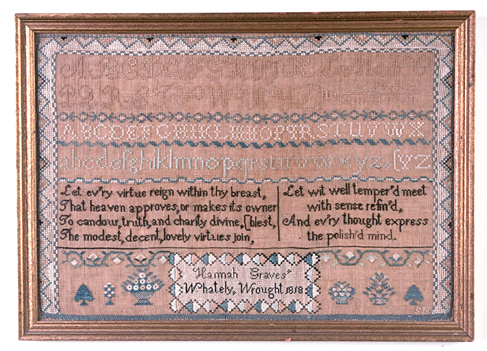 ABCDEFGHIKLMNOPQRSTUVWX
abcdefghiklmnopqrstuvwxyz (YZ
Let ev'ry virtue reign within thy breast,
That heaven approves, or makes its owner
To candour, truth, and charity divine, [blest,
The modest, decent, lovely virtues join,
Let wit well temper'd meet
with sense refin'd,
And ev'ry thought express
the polish'd mind.
Hannah Graves'
Whately, Wrought 1818